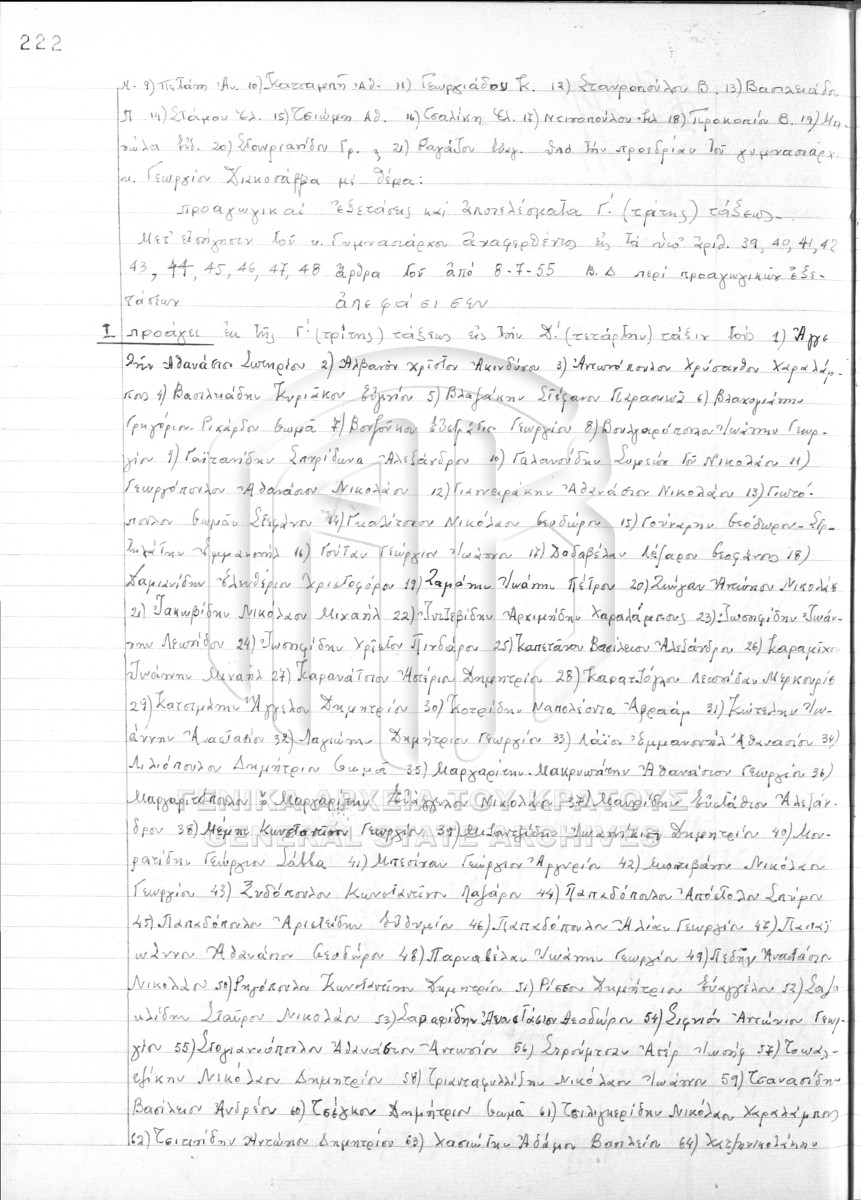 222
κ. 9) Πετάση Αν. 10) Κατσαμπή Αθ. 11) Γεωργιάδου Κ. 12) Σταυροπούλου Β. 13) Βασιλειάδου
Π 14) Στάμου Ελ. 15) Τσιώμη Αθ. 16) Τσαλίκη Ελ. 17) 18) Προκοπίου Β. 19)
Ευδ. 20) Γρ. 21) Ραγάζου Ευαγ. ὑπὸ τὴν προεδρίαν τοῦ γυμνασιάρχ.
κ. Γεωργίου Διακοσάββα μὲ θέμα:
προαγωγικαὶ ἐξετάσεις καὶ ἀποτελέσματα Γ΄. (τρίτης) τάξεως.
Μετ' εἰσήγησιν τοῦ κ. Γυμνασιάρχου ἀναφερθέντος εἰς τὰ ὑπ' ἀριθ. 39, 40, 41, 42
43, 44, 45, 46, 47, 48 ἄρθρα τοῦ ἀπὸ 8-7-55 Β.Δ περὶ προαγωγικῶν ἐξε-
τάσεων ἀπεφάσισεν
I προάγει ἐκ τῆς Γ΄ (τρίτης) τάξεως εἰς τὴν Δ΄. (τετάρτην) τάξιν τοὺς 1) Ἀγγε
λὴν Ἀθανάσιον Σωτηρίου 2) Ἀλβανὸν Χρῖστον Ἀκινδύνου 3) Ἀντωνόπουλον Χρύσανθον Χαραλάμ-
πους 4) Βασιλειάδην Κυριᾶκον Εὐγενίου 5) Βλαζάκην Στέφανον Παρασκευᾶ 6) Βλαχογιάννην
Γρηγόριον-Ρικάρδον Θωμᾶ 7) Βουζοῦκον Εὐστράτιον Γεωργίου 8) Βουλγαρόπουλον Ἰωάννην Γεωρ-
γίου 9) Γαϊτανίδην Σπυρίδωνα Ἀλεξάνδρου 10) Γαλανούδην Συμεὼν τοῦ Νικολάου 11)
Γεωργόπουλον Ἀθανάσιον Νικολάου 12) Γιαννειράκην Ἀθανάσιον Νικολάου 13) Γιωτό-
πουλον Θωμᾶν Στεφάνου 14) Γκαλίτσιον Νικόλαον Θεοδώρου 15) Γούναρην Θεόδωρον-Στρ-
Ἐμμανουὴλ 16) Γούταν Γεώργιον Ἰωάννου 17) Δαδαβέλαν Λάζαρον Θεοφάνους 18)
Δαμιανίδην Ἐλευθέριον Χριστοφόρου 19) Ζαμάνην Ἰωάννην Πέτρου 20) Ζιώγαν Ἀντώνιον Νικολάου
21) Ἰακωβίδην Νικόλαον Μιχαὴλ 22) Ἰντζεβίδην Ἀρχιμήδην Χαραλάμπους 23) Ἰωσηφίδην Ἰωάν-
νην Λεωνίδου 24) Ἰωσηφίδην Χρῖστον Πινδάρου 25) Καπετάνου Βασίλειον Ἀλεξάνδρου 26) Καραμίχον
Ἰωάννην Μιχαὴλ 27) Καρανάτσιον Ἀστέριον Δημητρίου 28) Καρατζόγλου Λεωνίδαν Μερκουρίου
29) Κατσιμάνην Ἄγγελον Δημητρίου 30) Κοτρίδην Ναπολέοντα Ἀβραὰμ 31) Κώτελην Ἰω-
άννην Ἀναστασίου 32) Λαγιώτην Δημήτριον Γεωργίου 33) Λάϊον Ἐμμανουὴλ Ἀθανασίου 34)
Λιλιόπουλον Δημήτριον Θωμᾶ 35) Μαργαρίτην-Μακρυωτάτην Ἀθανάσιον Γεωργίου 36)
Μαργαριτόπουλον ἢ Μαργαρίτην Εὐάγγελον Νικολάου 37) Μαυρίδην Εὐστάθιον Ἀλεξάν-
δρου 38) Μέμην Κωνσταντῖνον Γεωργίου 39) Μεϊαντζίδην Δημητρίου 40) Μου-
ρατίδην Γεώργιον Σάββα 41) Μπεσίναν Γεώργιον Ἀργυρίου 42) Νικόλαον
Γεωργίου 43) Ξυδόπουλον Κωνσταντῖνον Λαζάρου 44) Παπαδόπουλον Ἀπόστολον Σπύρου
45) Παπαδόπουλον Ἀριστείδην Εὐθυμίου 46) Παπαδόπουλον Ἠλίαν Γεωργίου 47) Παπαϊ
ωάννου Ἀθανάσιον Θεοδώρου 48) Παρναβέλαν Ἰωάννην Γεωργίου 49) Πεδὴν Ἀναστάσιον
Νικολάου 50) Ρηγόπουλον Κωνσταντῖνον Δημητρίου 51) Ρίσσον Δημήτριον Εὐαγγέλου 52) Σαζα
κλίδην Σταῦρον Νικολάου 53) Σαραφίδην Ἀναστάσιον Θεοδώρου 54) Σιφνιὸν Ἀντώνιον Γεωρ-
γίου 55) Στογιαννόπουλον Ἀθανάσιον Ἀντωνίου 56) Στρούμτσαν Ἀστέρ. Ἰωσὴφ 57) Τοπαλ-
τζίκην Νικόλαον Δημητρίου 58) Τριανταφυλλίδην Νικόλαον Ἰωάννου 59) Τσανασίδην
Βασίλειον Ἀνδρέου 60) Τσέγκον Δημήτριον Θωμᾶ 61) Τσιλιγκερίδην Νικόλαον Χαραλάμπους
62) Τσιτιρίδην Ἀντώνιον Δημητρίου 63) Χασιώτην Ἀδάμον Βασιλείου 64) Χατζηνικολάκην
ΓΕΝΙΚΑ ΑΡΧΕΙΑ ΤΟΥ ΚΡΑΤΟΥΣ
GENERAL STATE ARCHIVES